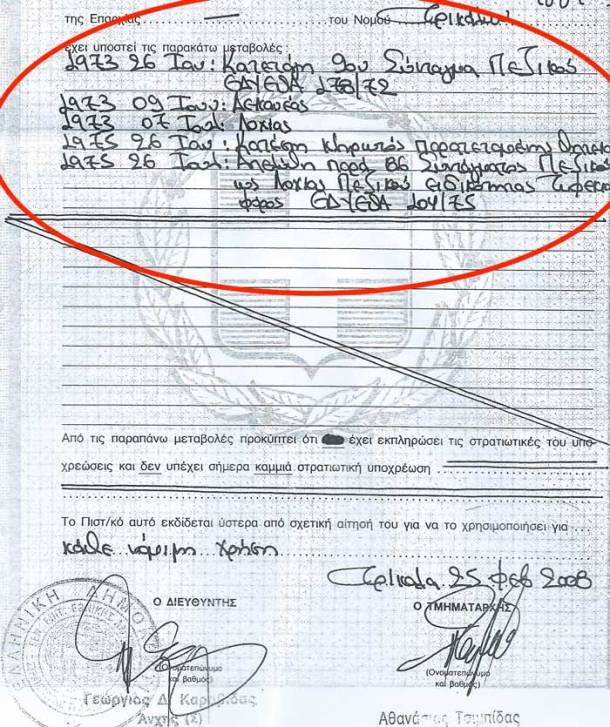 της Επαρχίας — του Νομού Τρικάλων
έχει υποστεί τις παρακάτω μεταβολές :
1973 26 Ιαν: Κατετάγη 9ον Σύνταγμα Πεζικού
ΕΔΥΕΘΑ 278/72
1973 09 Ιουν: Δεκανέας
1973 07 Ιουλ: Λοχίας
1975 26 Ιαν: Κατέστη κληρωτός παρατεταμένης
1975 26 Ιουλ: Απελύθη παρά 86 Συντάγματος Πεζικού
ως Λοχίας Πεζικού ειδικότητας
ΕΔΥΕΘΑ 204/75
Από τις παραπάνω μεταβολές προκύπτει ότι έχει εκπληρώσει τις στρατιωτικές του υπο-
χρεώσεις και δεν υπέχει σήμερα καμμιά στρατιωτική υποχρέωση
Το Πιστ/κό αυτό εκδίδεται ύστερα από σχετική αίτησή του για να το χρησιμοποιήσει για
κάθε νόμιμη χρήση
Τρίκαλα 25 Φεβ 2008
Ο ΔΙΕΥΘΥΝΤΗΣ
Ο ΤΜΗΜΑΤΑΡΧΗΣ
(Ονοματεπώνυμο
και βαθμός)
(Ονοματεπώνυμο
και βαθμός)
Γεώργιος Δ.
Ανχης (Σ)
Αθανάσιος Τσιμπίδας